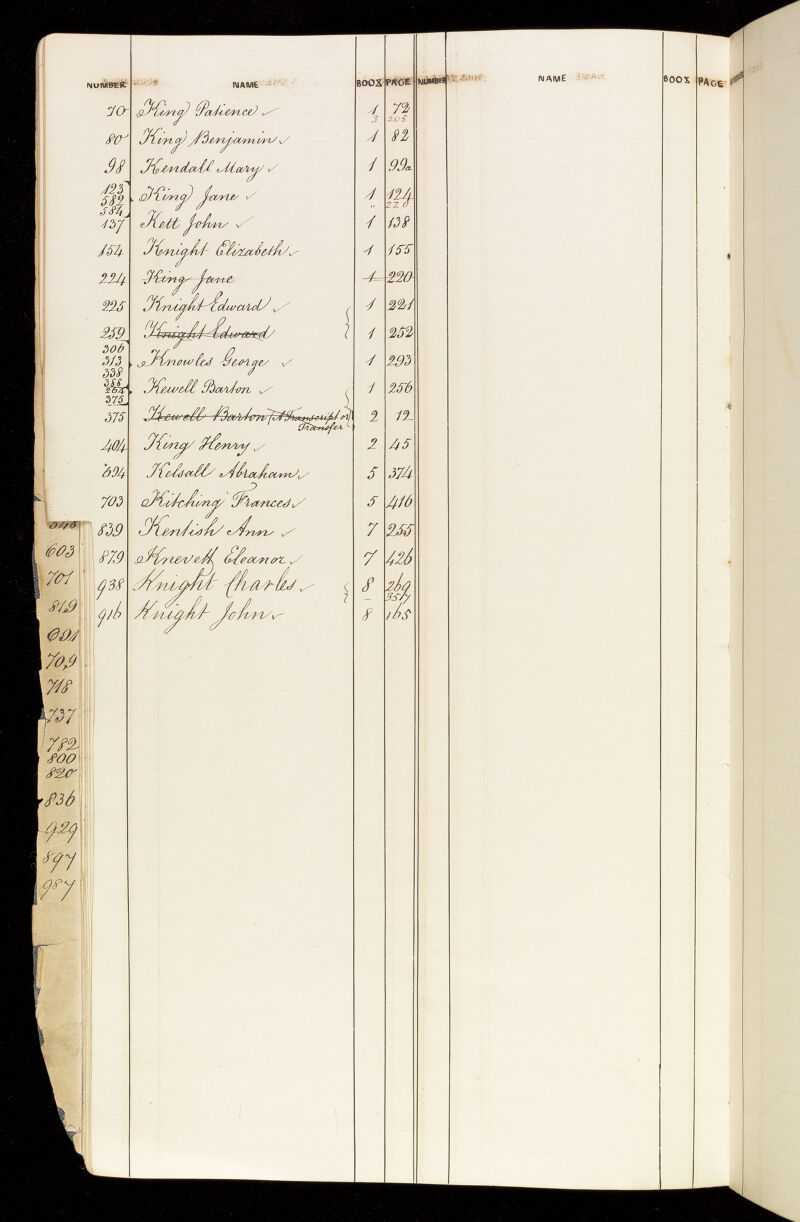 NUMBER NAME BOOK PAGE NUMBER NAME BOOK PAGE NUMBER
70 King Patience ✓ 1 72
3 205
80 King Benjamin ✓ 1 82
98 Kendall Mary ✓ 1 99a
123
582 King Jane ✓ 1 124
584 " 220
137 Kett John ✓ 1 138
154 Knight Elizabeth ✓ 1 155
224 King Jane 1 220
225 Knight Edward ✓ 1 221
259 Knight Edward 1 252
306
313 Knowles George ✓ 1 293
338
388
264 Kewell Barton ✓ 1 256
375
375 Kewell Barton (A Transcript or 2 12
Transfer)
404 King Henry ✓ 2 45
694 Kelsall Abraham ✓ 5 374
703 Kitching Frances ✓ 5 416
839 Kentish Ann ✓ 7 255
879 Knevett Eleanor ✓ 7 426
938 Knight Charles ✓ 8 269
916 Knight John ✓ 8 165
603
701
819
691
709
718
737
782
800
820
836
929
897
987